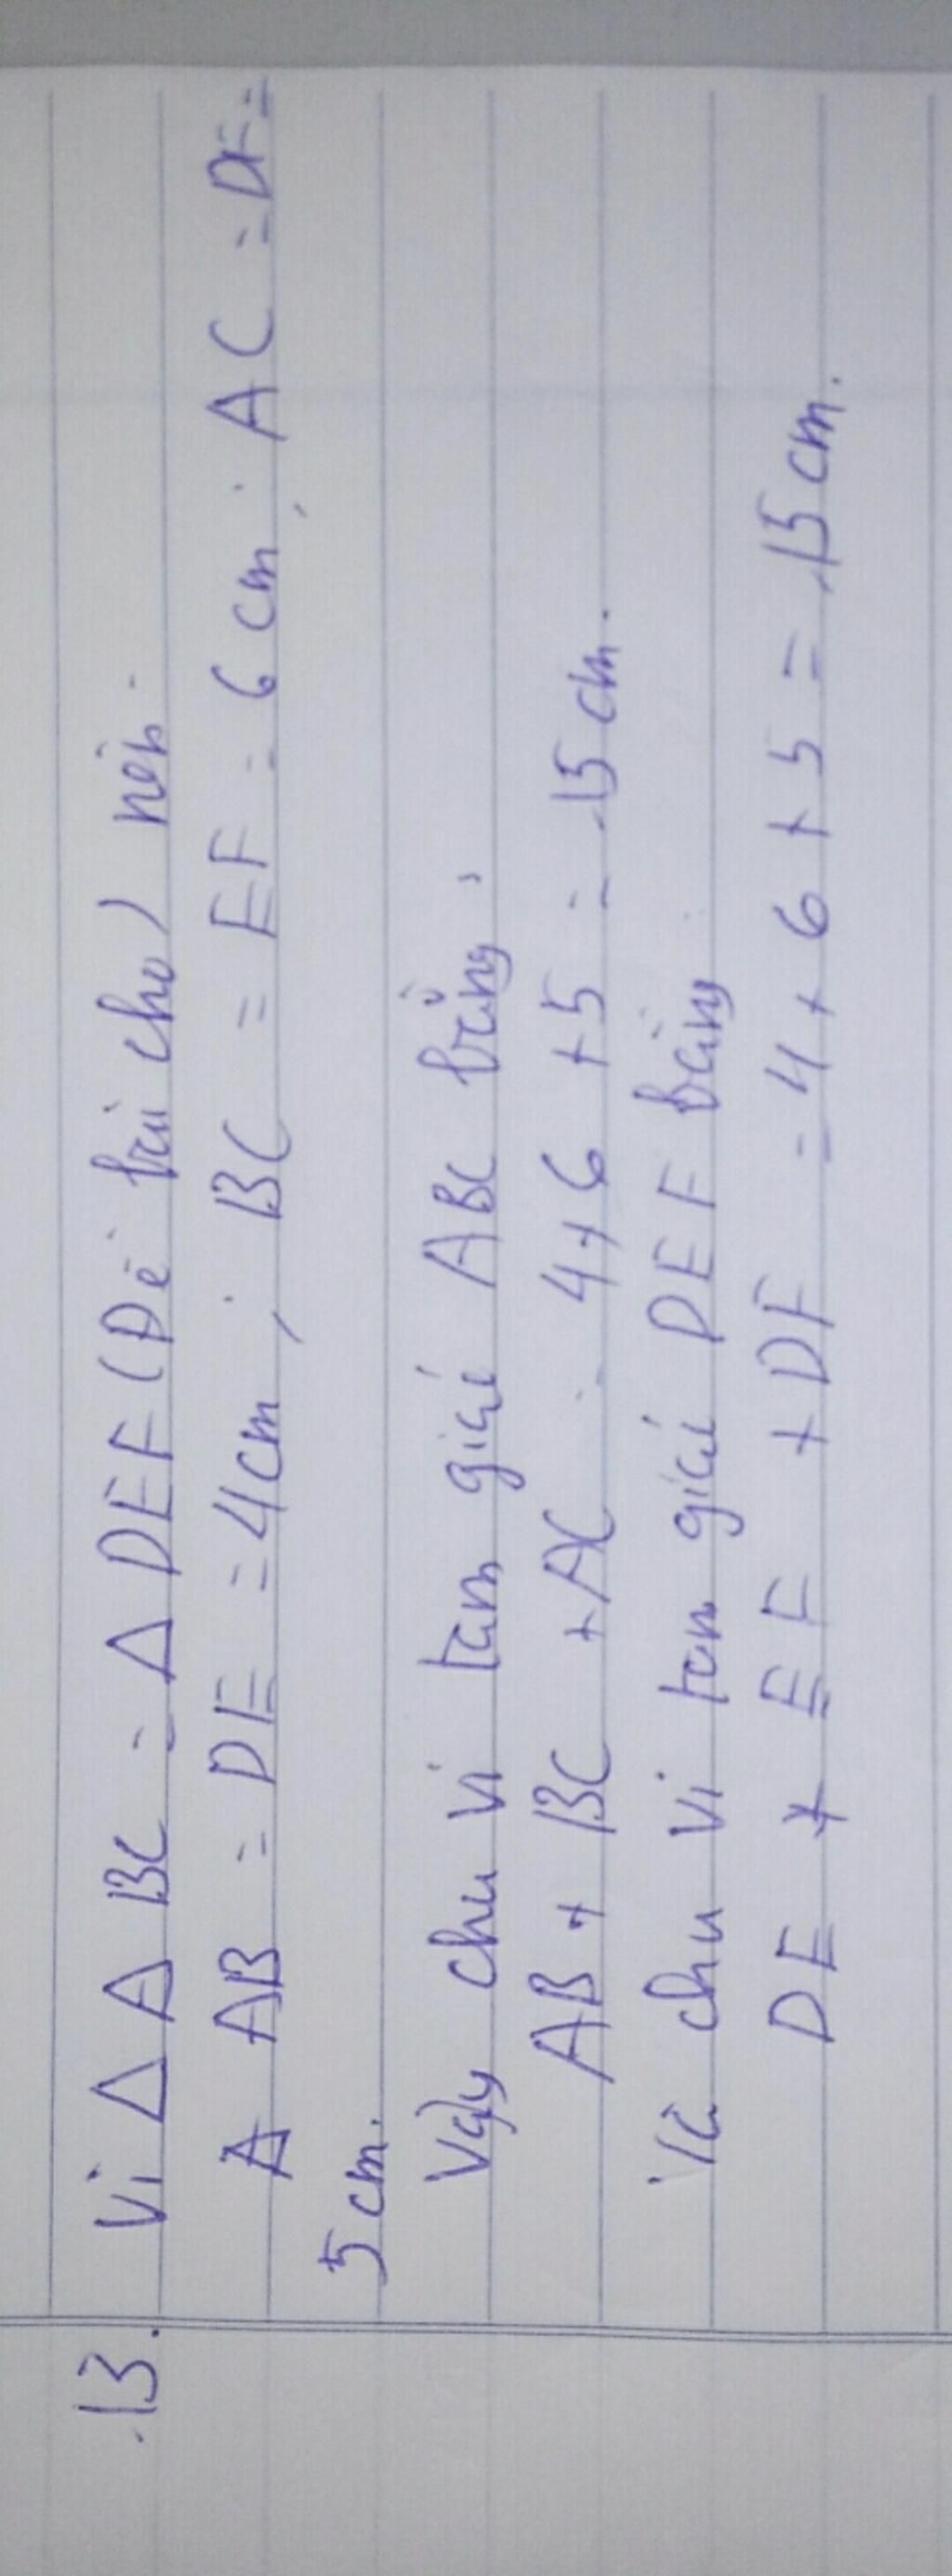 13. Vì Δ ABC = Δ DEF (Đề bài cho) nên
AB = DE = 4cm ; BC = EF = 6 cm ; AC = DF =
5 cm.
Vậy chu vi tam giác ABC bằng :
AB + BC + AC = 4 + 6 + 5 = 15 cm.
Và chu vi tam giác DEF bằng
DE + EF + DF = 4 + 6 + 5 = 15 cm.